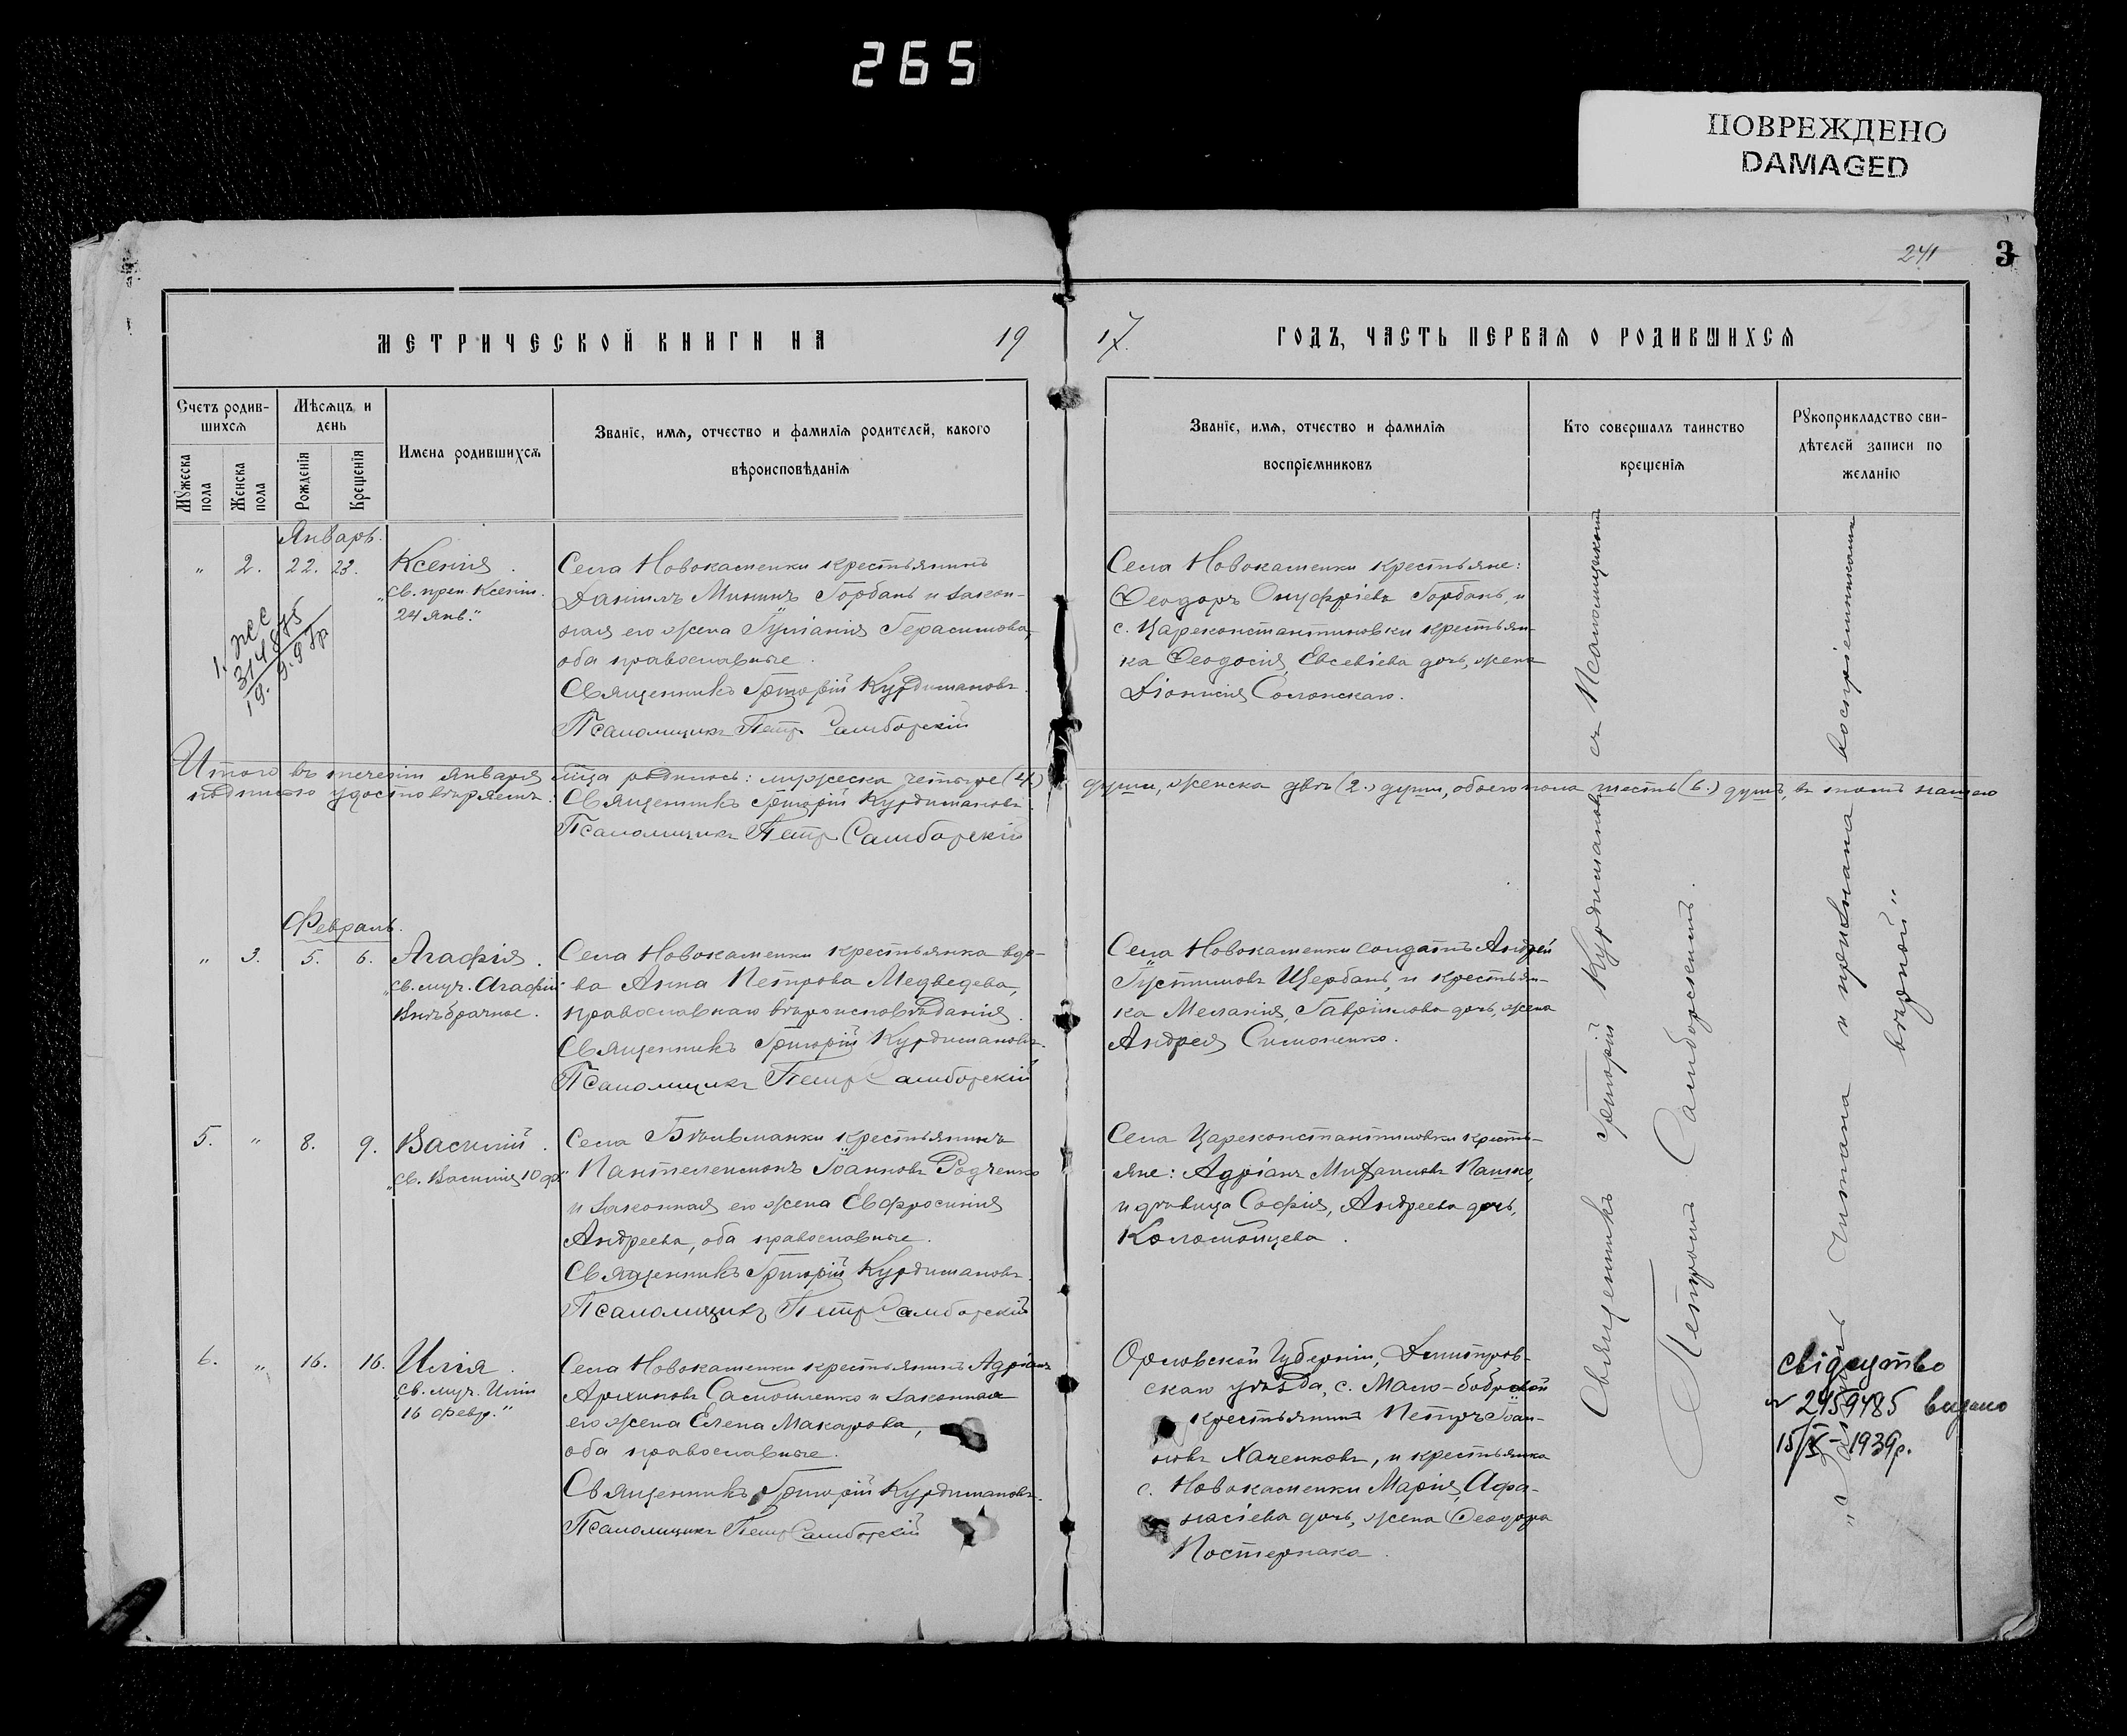 265
ПОВРЕЖДЕНО
DAMAGED
241
3
МЕТРИЧЕСКОЙ КНИГИ НА 19
17. ГОДЪ, ЧАСТЬ ПЕРВАЯ О РОДИВШИХСЯ
Счетъ родив-
шихся
Мѣсяцъ и
день
Мужеска
пола
Женска
пола
Рожденія
Крещенія
Имена родившихся
Званіе, имя, отчество и фамилія родителей, какого
вѣроисповѣданія
Званіе, имя, отчество и фамилія
воспріемниковъ
Кто совершалъ таинство
крещенія
Рукоприкладство сви-
дѣтелей записи по
желанію
Январь.
" 2. 22. 23.
Ксенія.
"св. преп. Ксеніи.
24 янв."
Села Новокаменки крестьянинъ
Даніилъ Мининъ Горбань и закон-
ная его жена Іуліанія Герасимова,
оба православные.
Священникъ Григорій Курдимановъ.
Псаломщикъ Петръ Самборскій
Села Новокаменки крестьяне:
Ѳеодоръ Онуфріевъ Горбань, и
с. Цареконстантиновки крестьян-
ка Ѳеодосія, Евсевіева дочь, жена
Діонисія Солонскаго.
Итого въ теченіи января м-ца родилось: мужеска четыре (4.) души, женска двѣ (2.) души, обоего пола шесть (6.) душъ, въ томъ нашею
подписью удостовѣряемъ:
Священникъ Григорій Курдимановъ.
Псаломщикъ Петръ Самборскій
Февраль.
" 3. 5. 6.
Агафія.
"св. муч. Агафіи"
Внѣбрачное.
Села Новокаменки крестьянка вдо-
ва Анна Петрова Медведева,
православнаго вѣроисповѣданія.
Священникъ Григорій Курдимановъ.
Псаломщикъ Петръ Самборскій
Села Новокаменки солдатъ Андрей
Іустиновъ Щербань, и крестьян-
ка Меланія, Гавріилова дочь, жена
Андрея Симоненко.
5. " 8. 9.
Василій.
"св. Василія 10 ф."
Села Бѣльманки крестьянинъ
Пантелеимонъ Іоанновъ Родченко
и законная его жена Евфросинія
Андреева, оба православные.
Священникъ Григорій Курдимановъ.
Псаломщикъ Петръ Самборскій
Села Цареконстантиновки кресть-
яне: Адріанъ Пашко,
и дѣвица Софія, Андреева дочь,
Коломойцева.
6. " 16. 16.
Илія.
"св. муч. Иліи
16 февр."
Села Новокаменки крестьянинъ Адріанъ
Архиповъ Самойленко и законная
его жена Елена Макарова,
оба православные.
Священникъ Григорій Курдимановъ.
Псаломщикъ Петръ Самборскій
Орловской Губерніи, Дмитров-
скаго уѣзда, с. Мало-бобровой
крестьянинъ Петръ Іоан-
новъ Хаченковъ, и крестьянка
с. Новокаменки Марія, Афа-
насіева дочь, жена Ѳеодора
Постернака.
Священникъ Григорій Курдимановъ съ Псаломщикомъ
Петромъ Самборскимъ.
"Запись читана и признана воспріемниками
вѣрной."
свідоцтво
№ 2459485 видано
15/X-1939р.